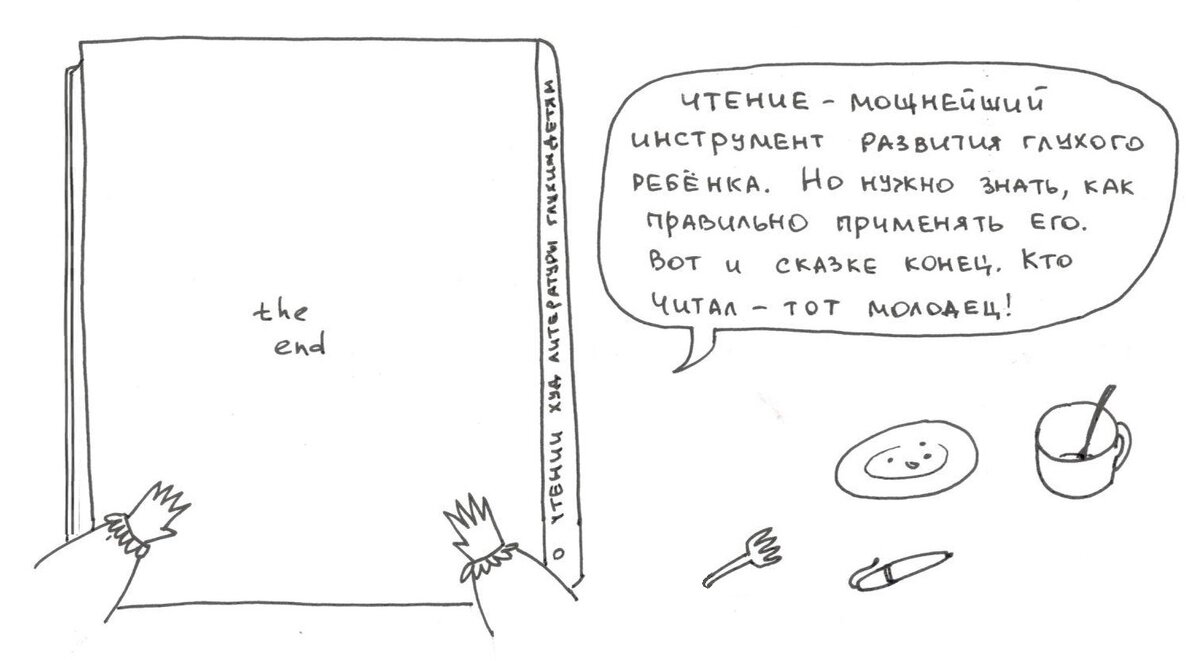 the
end
О ЧТЕНИИ ХУД ЛИТЕРАТУРЫ ГЛУХИМ ДЕТЯМ
ЧТЕНИЕ – МОЩНЕЙШИЙ
ИНСТРУМЕНТ РАЗВИТИЯ ГЛУХОГО
РЕБЁНКА. НО НУЖНО ЗНАТЬ, КАК
ПРАВИЛЬНО ПРИМЕНЯТЬ ЕГО.
ВОТ И СКАЗКЕ КОНЕЦ. КТО
ЧИТАЛ – ТОТ МОЛОДЕЦ!